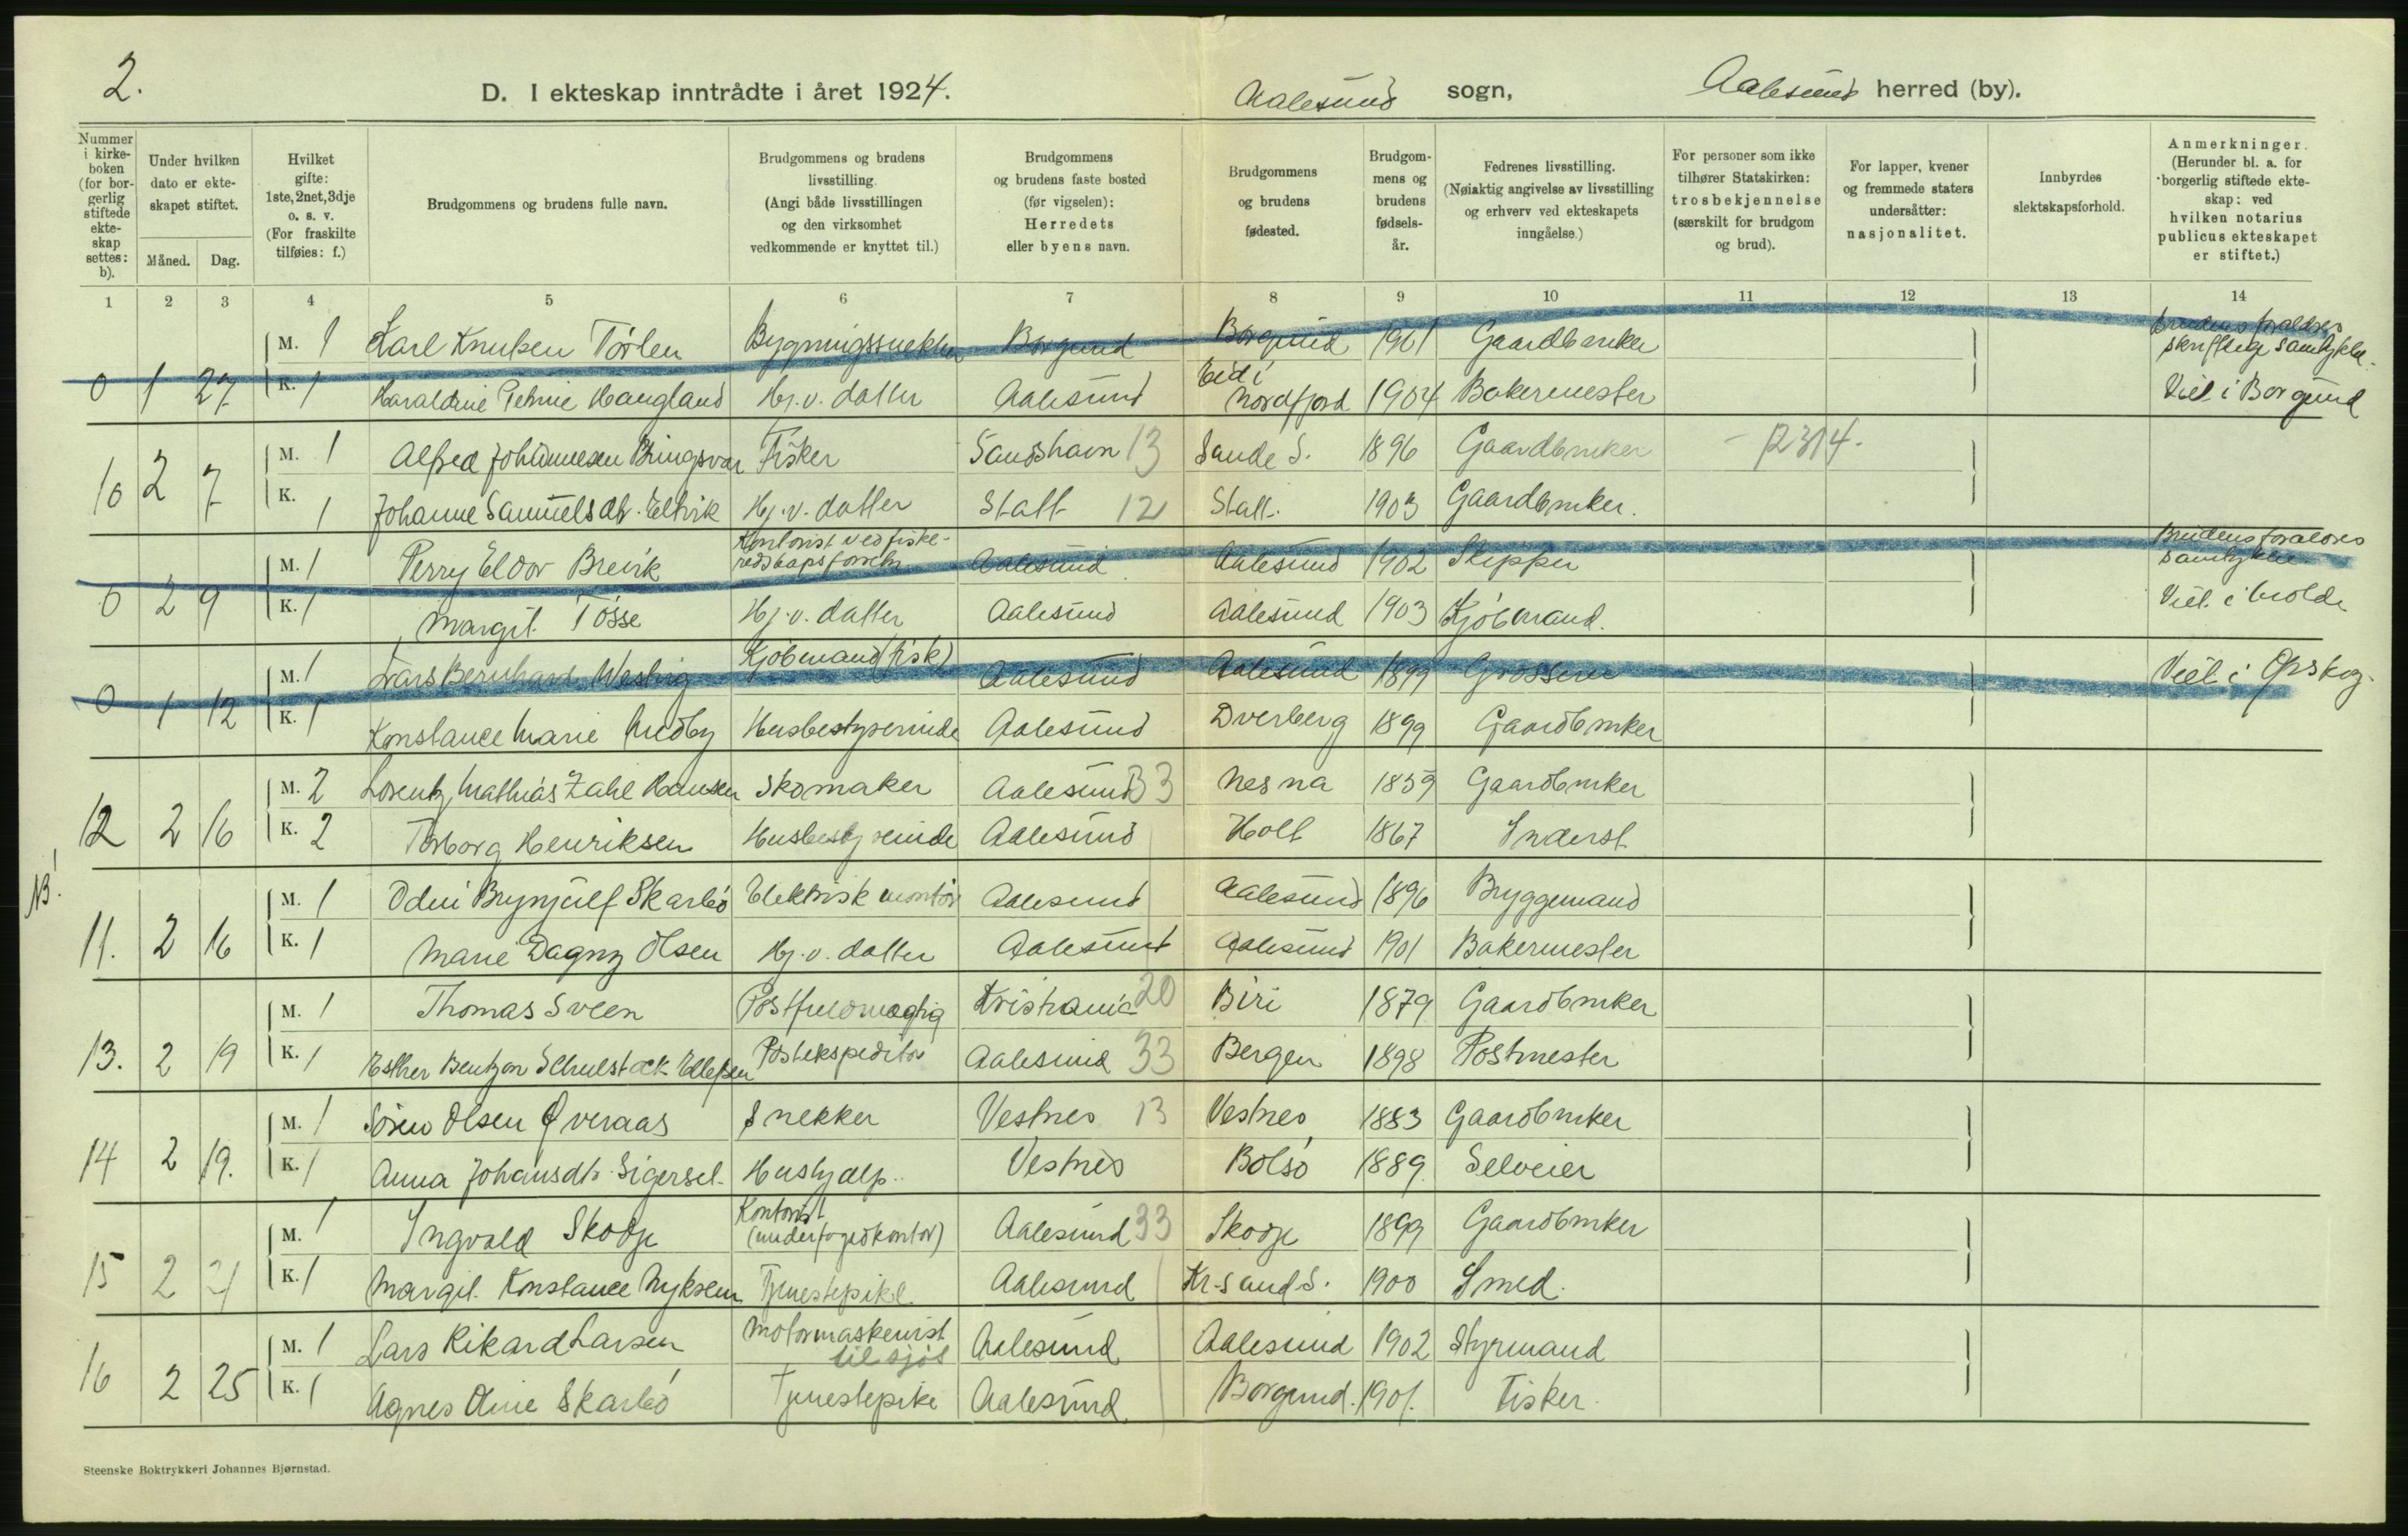 2.
D. I ekteskap inntrådte i året 1924.
Aalesund sogn,
Aalesund herred (by).
Nummer i kirke-boken (for bor-gerlig stiftede ekte-skap settes: b).
Under hvilken dato er ekte-skapet stiftet.
Måned. Dag.
Hvilket gifte: 1ste, 2net, 3dje o. s. v. (For fraskilte tilføies: f.)
Brudgommens og brudens fulle navn.
Brudgommens og brudens livsstilling. (Angi både livsstillingen og den virksomhet vedkommende er knyttet til.)
Brudgommens og brudens faste bosted (før vigselen): Herredets eller byens navn.
Brudgommens og brudens fødested.
Brudgom-mens og brudens fødsels-år.
Fedrenes livsstilling. (Nøiaktig angivelse av livsstilling og erhverv ved ekteskapets inngåelse.)
For personer som ikke tilhører Statskirken: trosbekjennelse (særskilt for brudgom og brud).
For lapper, kvener og fremmede staters undersåtter: nasjonalitet.
Innbyrdes slektskapsforhold.
Anmerkninger. (Herunder bl. a. for borgerlig stiftede ekte-skap: ved hvilken notarius publicus ekteskapet er stiftet.)
1 2 3 4 5 6 7 8 9 10 11 12 13 14
M. 1 Karl Knutsen Tørlen Bygningssnekker Borgund Borgund 1901 Gaardbruker brudens foraldres skriftlige samtykke.
0 1 27 K. 1 Haraldine Petrine Haugland Hj. v. datter Aalesund Eid i Nordfjord 1904 Bakermester Viet i Borgund
M. 1 Alfred Johannesen Bringsvor Fisker Sandshavn 13 Sande S. 1896 Gaardbruker
10 2 7 K. 1 Johanne Samuelsdtr. Eltvik Hj. v. datter Statt 12 Statt. 1903 Gaardbruker.
M. 1 Perry Eldor Breivik Kontorist ved fiske-redskapsforretn. Aalesund Aalesund 1902 Skipper Brudens foraldres samtykke
0 2 9 K. 1 Margit Tosse Hj. v. datter Aalesund Aalesund 1903 Kjøbmand. Viet i Molde
M. 1 Lars Bernhard Kjøbmand (fisk) Aalesund Aalesund 1899 Grosserer Viet i Ørskog.
0 1 12 K. 1 Konstance Marie Husbestyrerinde Aalesund Dverberg 1899 Gaardbruker
M. 2 Lorentz Mathias Zahl Hansen Skomaker Aalesund 33 Nesna 1859 Gaardbruker
12 2 16 K. 2 Torborg Henriksen Husbestyrerinde Aalesund Holt 1867 Inderst
NB!
M. 1 Odin Brynjulf Skarbö Elektrisk montör Aalesund Aalesund 1896 Bryggemand
11. 2 16 K. 1 Marie Dagny Olsen Hj. v. datter Aalesund Aalesund 1901 Bakermester
M. 1 Thomas Sveen Postfuldmægtig Kristiania 20 Biri 1879 Gaardbruker
13. 2 19 K. 1 Esther Bentzon Schulstock Ellefsen Postekspeditør Aalesund 33 Bergen 1898 Postmester
M. 1 Sören Olsen Øveraas Snekker Vestnes 13 Vestnes 1883 Gaardbruker
14 2 19. K. 1 Anna Johansdtr. Sigerset Hushjælp. Vestnes Bolsö 1889 Selveier
M. 1 Ingvald Skodje Kontorist (underfogedkontor) Aalesund 33 Skodje 1899 Gaardbruker
15 2 21 K. 1 Margit Konstance Myksem Tjenestepike Aalesund Kr.sand S. 1900 Smed.
M. 1 Lars Rikard Larsen Motormaskinist til sjös Aalesund Aalesund 1902 Styrmand
16 2 25 K. 1 Agnes Oline Skarbö Tjenestepike Aalesund Borgund. 1901. Fisker.
Steenske Boktrykkeri Johannes Bjørnstad.